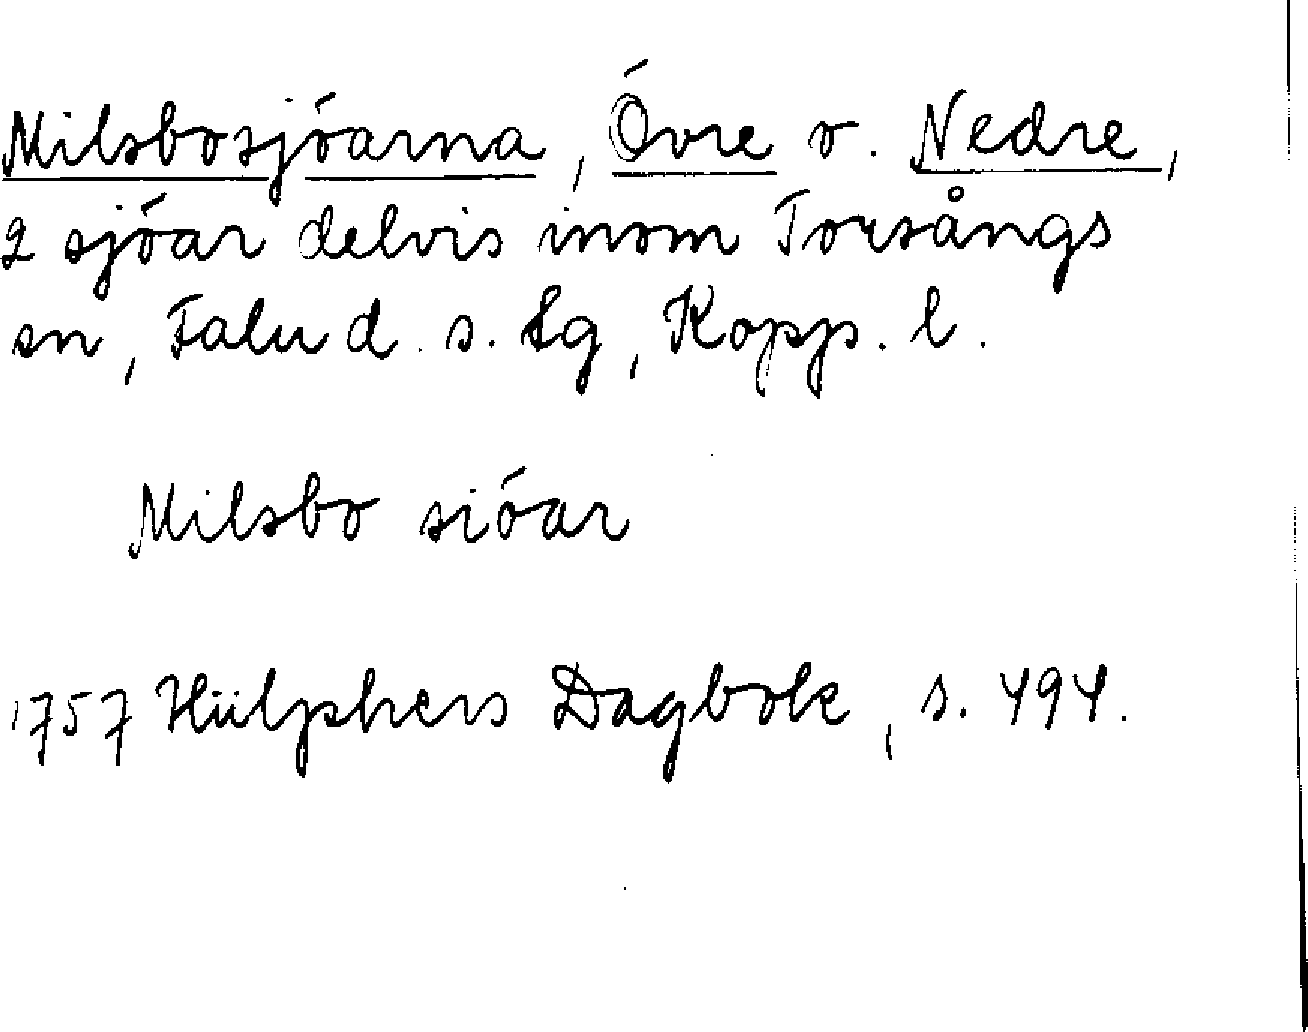 Milsbosjöarna, Övre o. Nedre,
2 sjöar delvis inom Torsångs
sn, Falu d. s. lg, Kopp. l.
Milsbo siöar
1757 Hülphers Dagbok, s. 494.